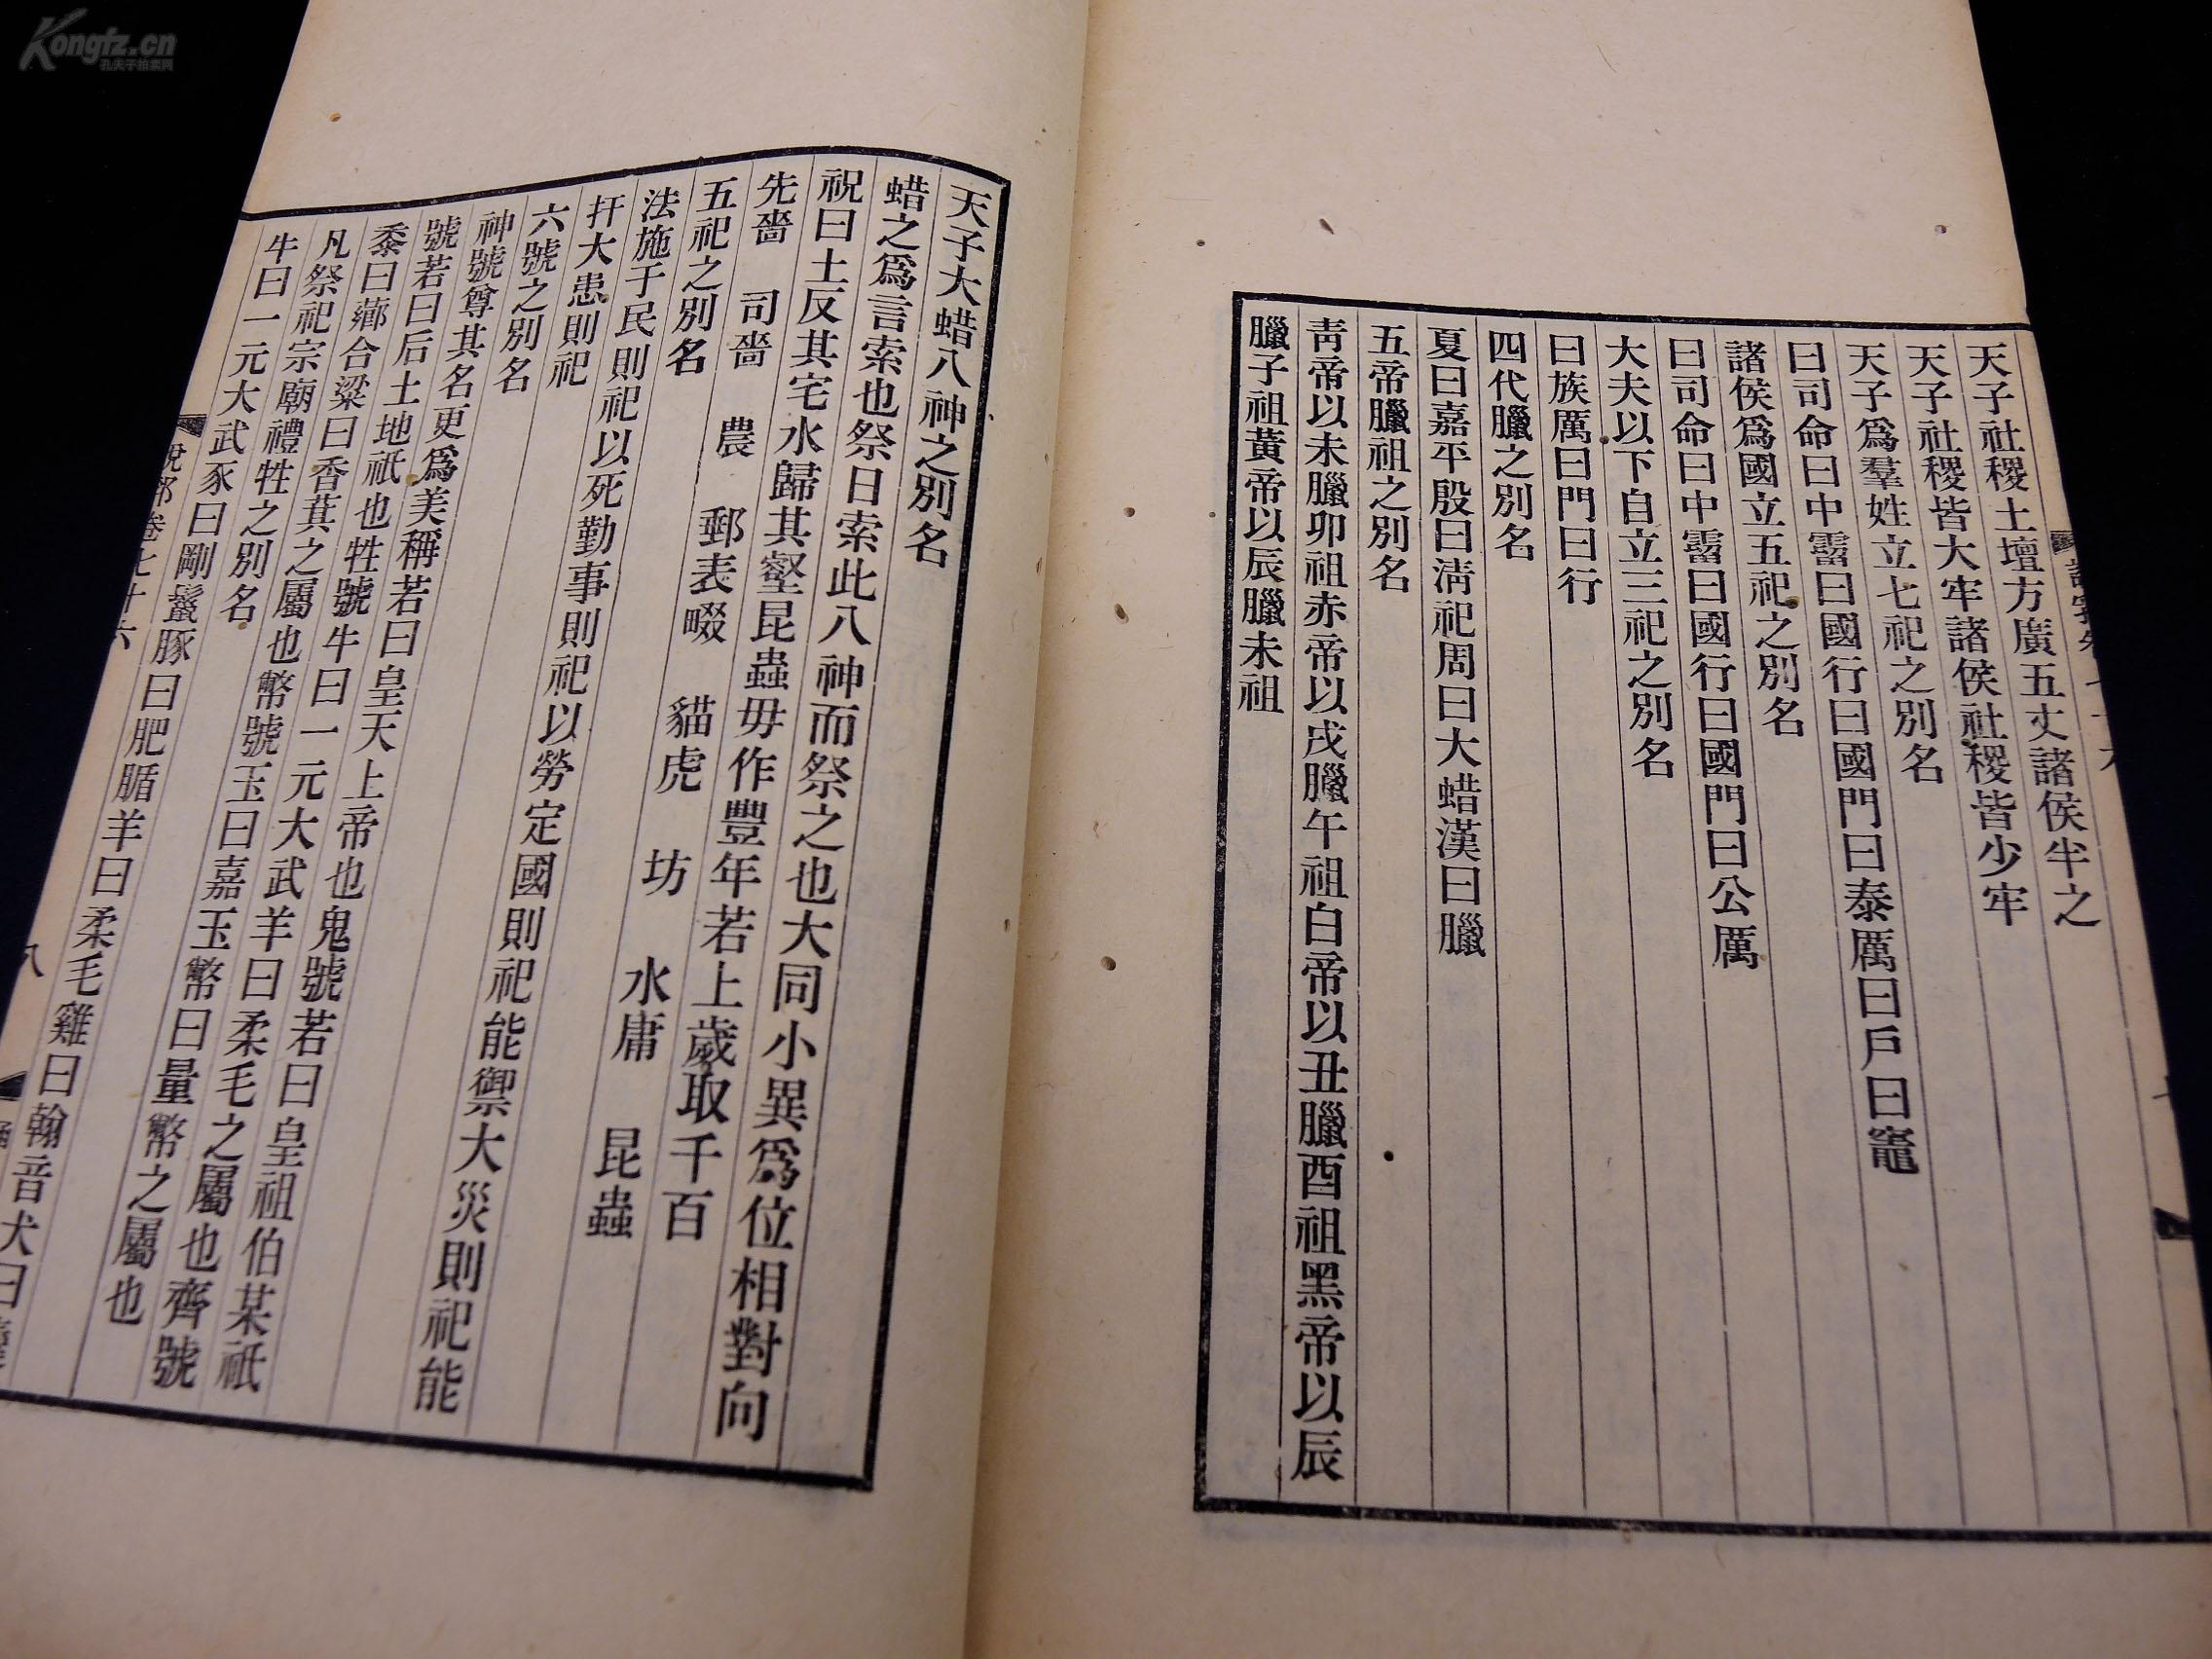 Kongfz.cn
孔夫子拍卖网
天子社稷土壇方廣五丈諸侯半之
天子社稷皆大牢諸侯社稷皆少牢
天子爲羣姓立七祀之別名
曰司命曰中霤曰國行曰國門曰泰厲曰戶曰竈
諸侯爲國立五祀之別名
曰司命曰中霤曰國行曰國門曰公厲
大夫以下自立三祀之別名
曰族厲曰門曰行
四代臘之別名
夏曰嘉平殷曰淸祀周曰大蜡漢曰臘
五帝臘祖之別名
靑帝以未臘卯祖赤帝以戌臘午祖白帝以丑臘酉祖黑帝以辰
臘子祖黃帝以辰臘未祖
天子大蜡八神之別名
蜡之爲言索也祭日索此八神而祭之也大同小異爲位相對向
祝曰土反其宅水歸其壑昆蟲毋作豐年若上歲取千百
先嗇 司嗇 農 郵表畷 貓虎 坊 水庸 昆蟲
五祀之別名
法施于民則祀以死勤事則祀以勞定國則祀能禦大災則祀能
扞大患則祀
六號之別名
神號尊其名更爲美稱若曰皇天上帝也鬼號若曰皇祖伯某祇
號若曰后土地祇也牲號牛曰一元大武羊曰柔毛之屬也齊號
黍曰薌合粱曰香萁之屬也幣號玉曰嘉玉幣曰量幣之屬也
凡祭祀宗廟禮牲之別名
牛曰一元大武豕曰剛鬣豚曰肥腯羊曰柔毛雞曰翰音犬曰
說郛卷七十六
八